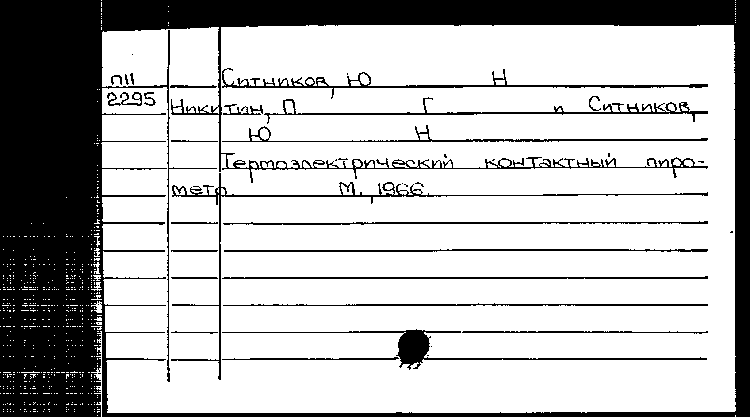 П11 Ситников, Ю Н
2295 Никитин, П Г и Ситников,
Ю Н
Термоэлектрический контактный пиро-
метр. М., 1966.